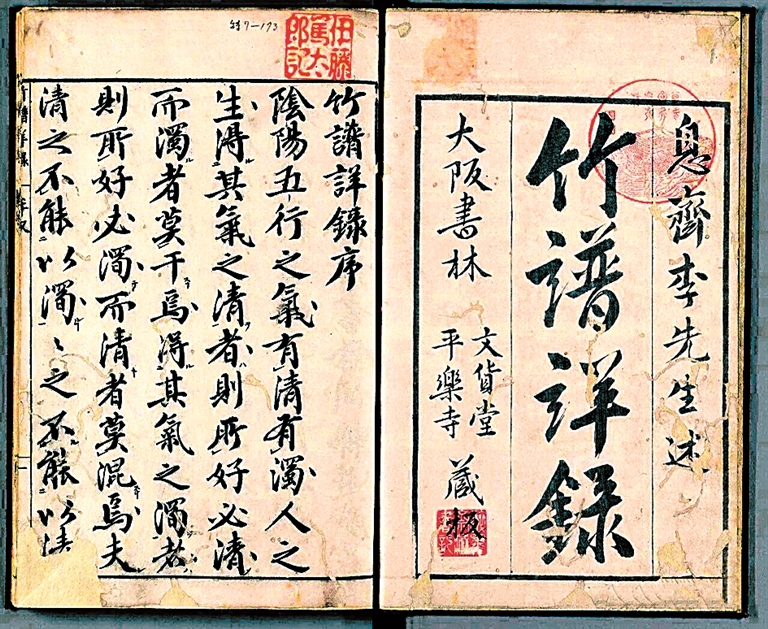 息齋李先生述
竹譜詳録
大阪書林
文貨堂
平樂寺
藏板
特7-193
伊藤篤太郎記
竹譜詳録序
陰陽五行之氣有清有濁人之
生得其氣之清者則所好必清
而濁者莫干焉得其氣之濁者
則所好必濁而清者莫混焉夫
清之不能以濁〻之不能以清